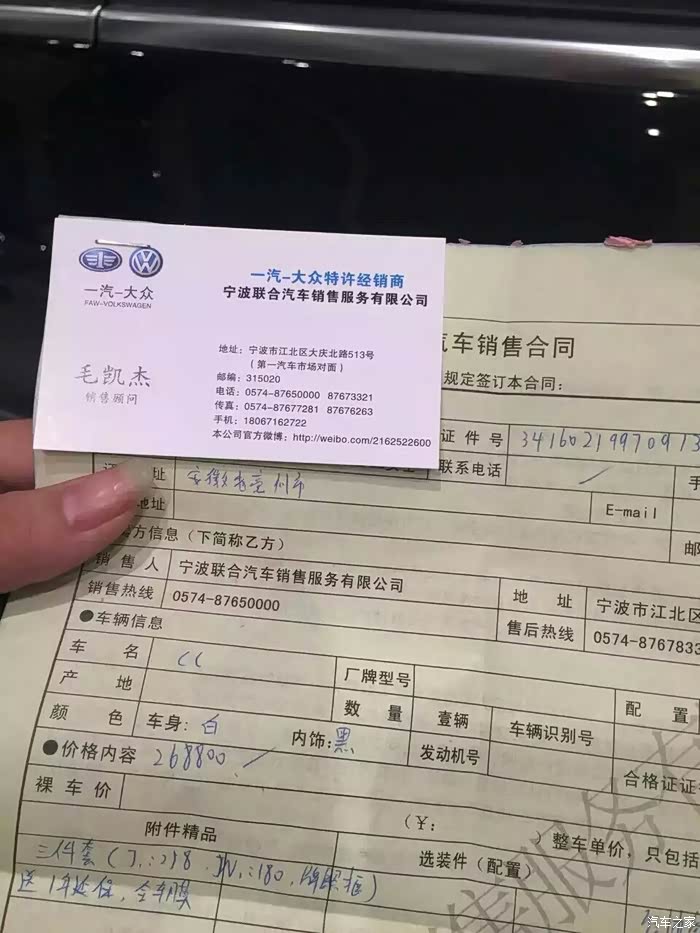 一汽-大众
FAW-VOLKSWAGEN
一汽-大众特许经销商
宁波联合汽车销售服务有限公司
毛凯杰
销售顾问
地址：宁波市江北区大庆北路513号
（第一汽车市场对面）
邮编：315020
电话：0574-87650000 87673321
传真：0574-87677281 87676263
手机：18067162722
本公司官方微博：http://weibo.com/2162522600
汽车销售合同
规定签订本合同：
证件号 34160219970913
联系电话
址 安徽省亳州市
地址 E-mail 邮
方信息（下简称乙方）
销售人 宁波联合汽车销售服务有限公司 地址 宁波市江北区
销售热线 0574-87650000 售后热线 0574-8767833
●车辆信息
车名 CC 厂牌型号 配置
产地 数量 壹辆 车辆识别号
颜色 车身：白 内饰：黑 发动机号 合格证证
●价格内容 268800
裸车价 （¥： ）整车单价，只包括
附件精品 选装件（配置）
三件套
送1年延保，全车膜
销售服务有
汽车之家